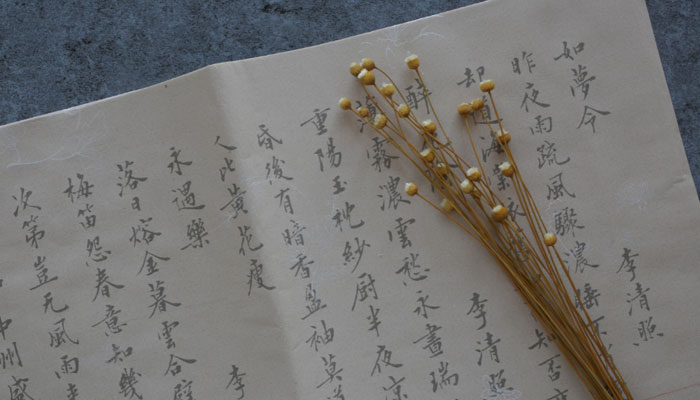 如夢令 李清照
昨夜雨疏風驟濃睡不
却道海棠依 知否
醉 李清照
薄霧濃雲愁永晝瑞
重陽玉枕紗厨半夜涼
昏後有暗香盈袖莫
人比黃花瘦
永遇樂 李
落日熔金暮雲合璧
梅笛怨春意知幾
次第豈无風雨
中州盛